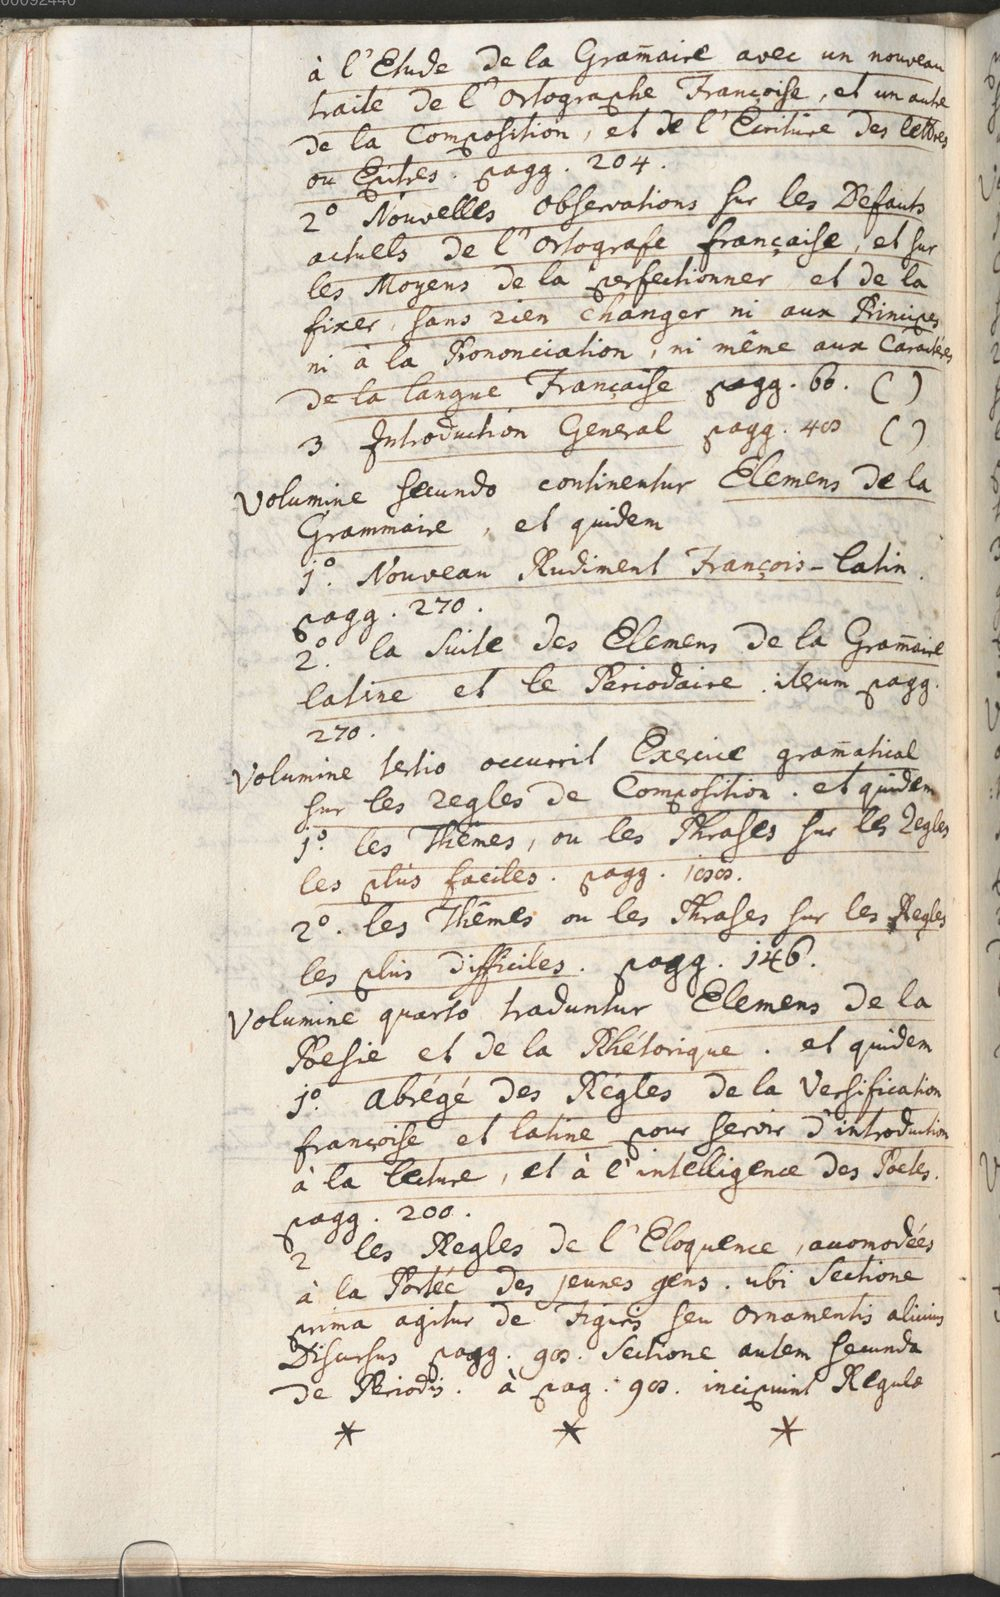 00092440
à l'Etude de la Gram̃aire avec un nouveau
traité de l'Ortographe Françoise, et un autre
de la Composition, et de l'Ecriture des lettres
ou Epitres. pagg. 204.
2° Nouvelles Observations sur les Defauts
actuels de l'Ortografe française, et sur
les Moyens de la perfectionner et de la
fixer, sans rien changer ni aux Principes,
ni à la Prononciation, ni même aux Caractéres
de la langue Française pagg. 60. ( )
3 Introduction General pagg. 40 ( )
Volumine secundo continentur Elemens de la
Grammaire, et quidem
1°. Nouveau Rudiment François-latin.
pagg. 270.
2°. la Suite des Elemens de la Gram̃aire
latine et le Periodaire. iterum pagg.
270.
Volumine tertio occurrit Exercice gram̃atical
sur les regles de Composition. et quidem
1°. les Thêmes, ou les Phrases sur les Regles
les plus faciles. pagg. 100.
2°. les Thêmes ou les Phrases sur les Regles
les plus difficiles. pagg. 146.
Volumine quarto traduntur Elemens de la
Poesie et de la Rhétorique. et quidem
1°. abrégé des Régles de la Versification
françoise et latine pour servir d'introduction
à la lecture, et à l'intelligence des Poetes.
pagg. 200.
2 les Regles de l'Eloquence, accomodées
à la Portée des jeunes gens. ubi Sectione
prima agitur de Figuris seu Ornamentis alicuius
Discursus pagg. 90. Sectione autem secunda
de Periodis. à pag. 90. incipiunt Regulæ
* * *